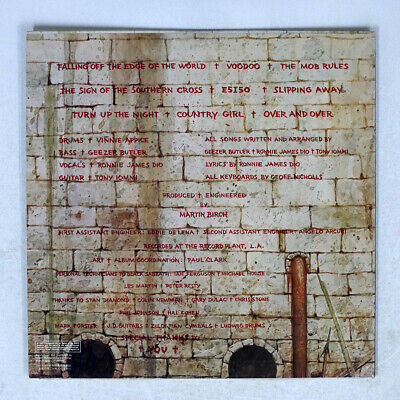 FALLING OFF THE EDGE OF THE WORLD † VOODOO † THE MOB RULES
THE SIGN OF THE SOUTHERN CROSS † E5150 † SLIPPING AWAY
TURN UP THE NIGHT † COUNTRY GIRL † OVER AND OVER
DRUMS † VINNIE APPICE
BASS † GEEZER BUTLER
VOCALS † RONNIE JAMES DIO
GUITAR † TONY IOMMI
ALL SONGS WRITTEN AND ARRANGED BY
GEEZER BUTLER † RONNIE JAMES DIO † TONY IOMMI
LYRICS BY RONNIE JAMES DIO
ALL KEYBOARDS BY GEOFF NICHOLLS
PRODUCED † ENGINEERED
BY
MARTIN BIRCH
FIRST ASSISTANT ENGINEER: EDDIE DE LENA † SECOND ASSISTANT ENGINEER: ANGELO ARCURI
RECORDED AT THE RECORD PLANT, L.A.
ART † ALBUM COORDINATION: PAUL CLARK
PERSONAL TECHNICIANS TO BLACK SABBATH: IAN FERGUSON † MICHAEL HOWSE
LES MARTIN † PETER RESTY
THANKS TO STAN DIAMOND † COLIN NEWMAN † GARY DULAC † CHRIS STONE
PHIL JOHNSON † HAL COHEN
MARK FORSTER † J.D. GUITARS † ZILDJIAN CYMBALS † LUDWIG DRUMS
SPECIAL THANKS TO
† YOU †